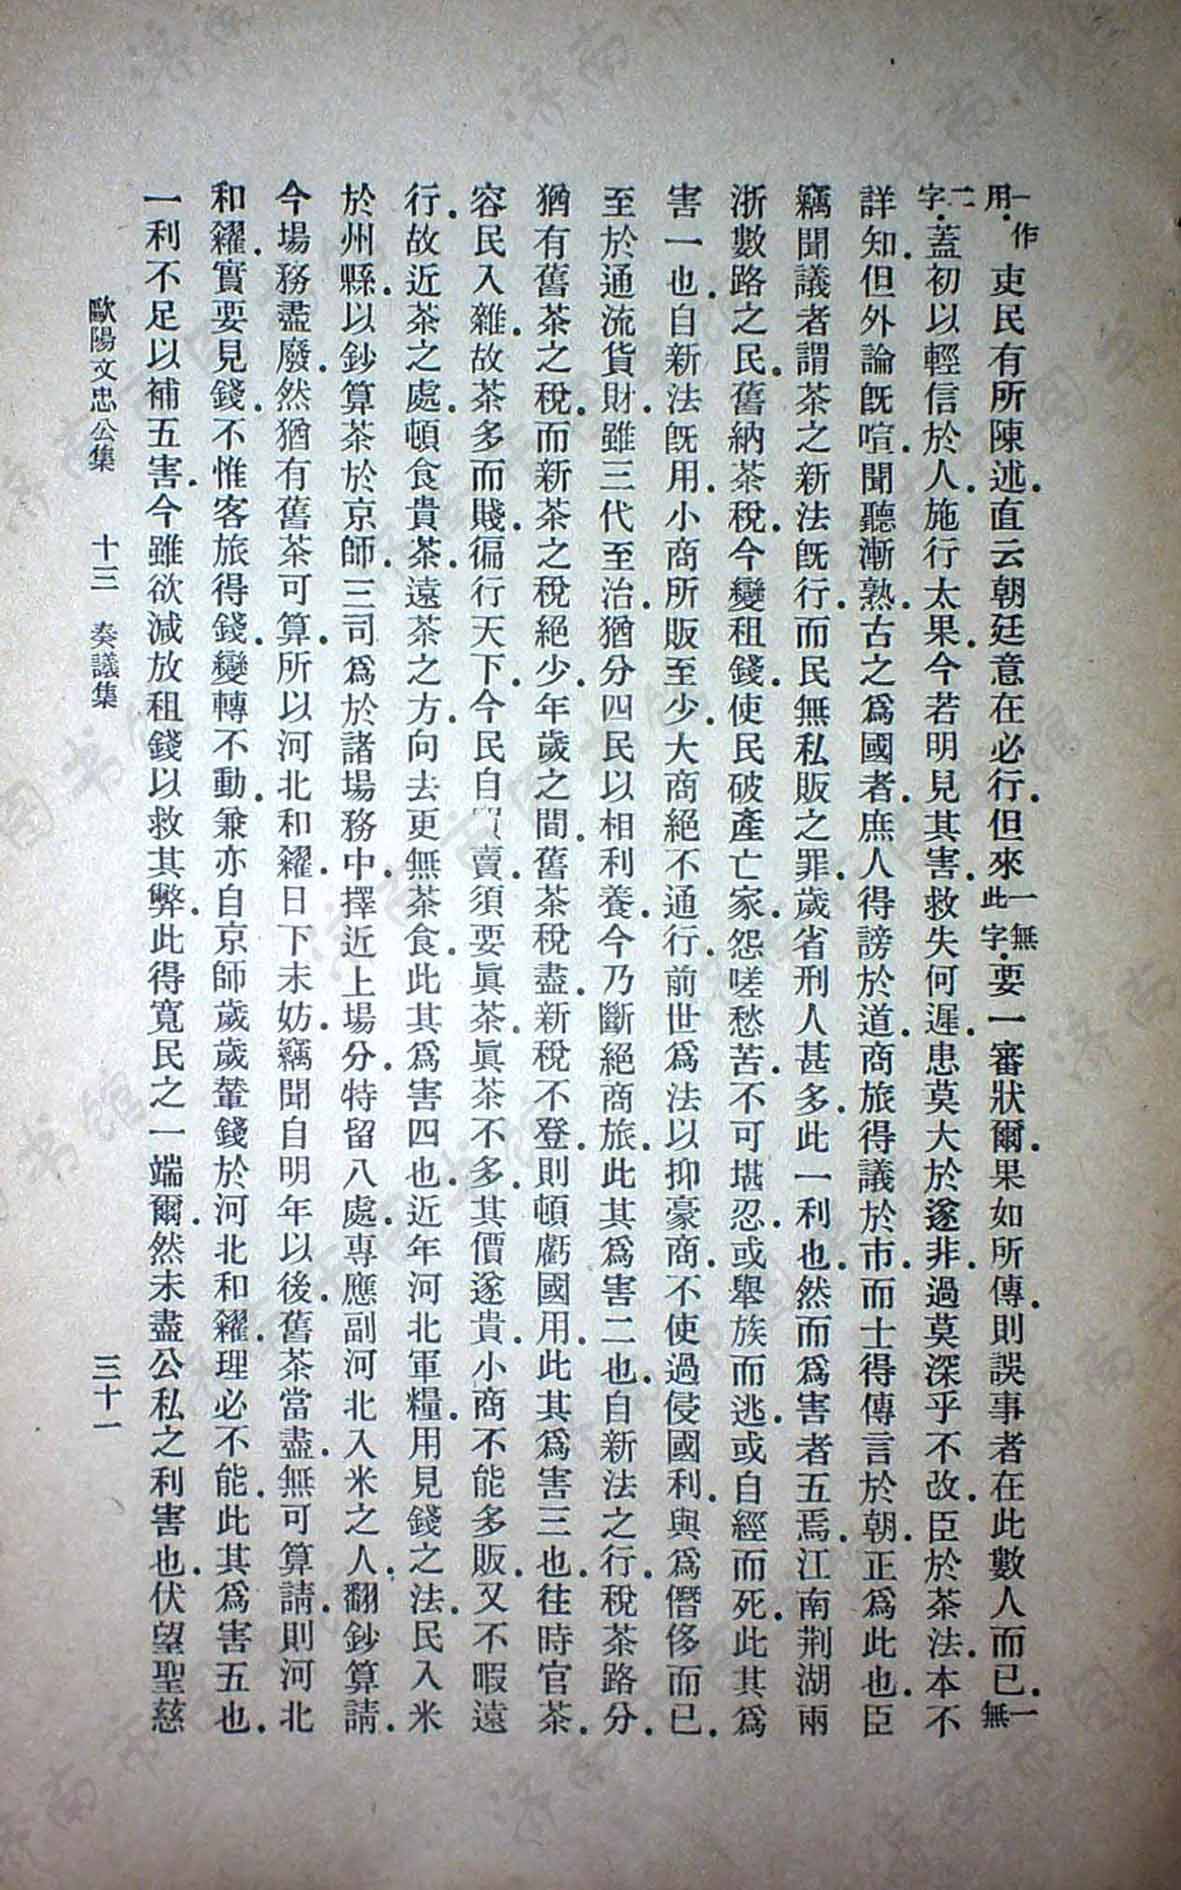 一作用。吏民有所陳述。直云朝廷意在必行。但來一無此字。要一審狀爾。果如所傳。則誤事者在此數人而已。一無
二字。蓋初以輕信於人。施行太果。今若明見其害。救失何遲。患莫大於遂非。過莫深乎不改。臣於茶法。本不
詳知。但外論既喧。聞聽漸熟。古之爲國者。庶人得謗於道。商旅得議於市。而士得傳言於朝。正爲此也。臣
竊聞議者謂茶之新法既行。而民無私販之罪。歲省刑人甚多。此一利也。然而爲害者五焉。江南荆湖兩
浙數路之民。舊納茶稅。今變租錢。使民破產亡家。怨嗟愁苦。不可堪忍。或舉族而逃。或自經而死。此其爲
害一也。自新法既用。小商所販至少。大商絕不通行。前世爲法以抑豪商。不使過侵國利。與爲僭侈而已。
至於通流貨財。雖三代至治。猶分四民。以相利養。今乃斷絕商旅。此其爲害二也。自新法之行。稅茶路分。
猶有舊茶之稅。而新茶之稅絕少。年歲之間。舊茶稅盡。新稅不登。則頓虧國用。此其爲害三也。往時官茶。
容民入雜。故茶多而賤。徧行天下。今民自買賣。須要眞茶。眞茶不多。其價遂貴。小商不能多販。又不暇遠
行。故近茶之處。頓食貴茶。遠茶之方。向去更無茶食。此其爲害四也。近年河北軍糧。用見錢之法。民入米
於州縣。以鈔算茶於京師。三司爲於諸場務中。擇近上場分。特留八處。專應副河北入米之人。翻鈔算請。
今場務盡廢。然猶有舊茶可算。所以河北和糴。日下未妨。竊聞自明年以後。舊茶當盡。無可算請。則河北
和糴。實要見錢。不惟客旅得錢。變轉不動。兼亦自京師歲歲輦錢於河北和糴。理必不能。此其爲害五也。
一利不足以補五害。今雖欲減放租錢以救其弊。此得寬民之一端爾。然未盡公私之利害也。伏望聖慈
歐陽文忠公集 十三 奏議集 三十一